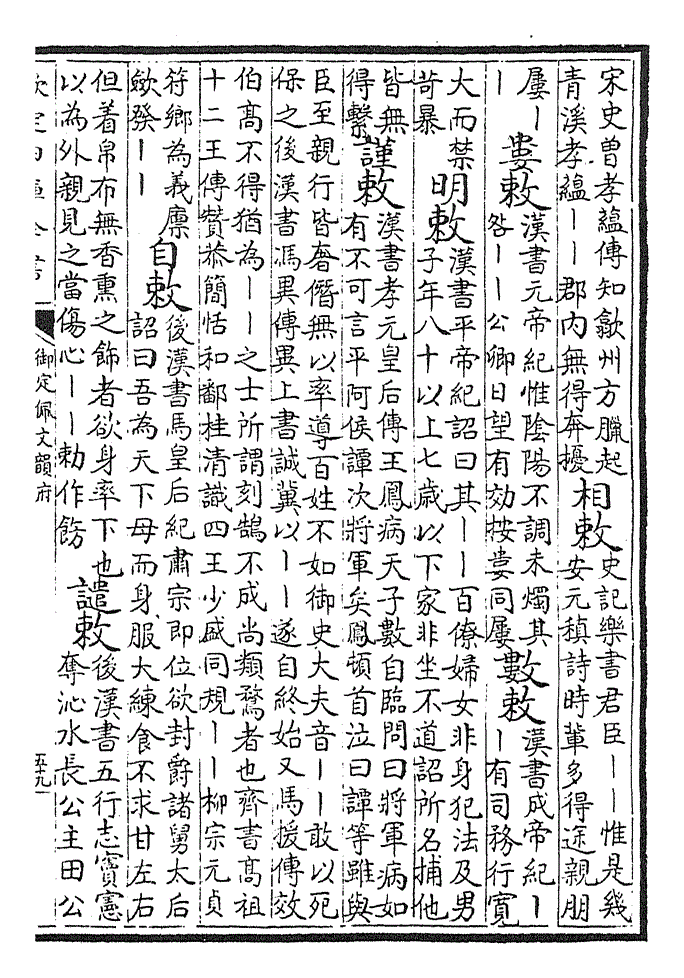 宋史曾孝藴傳知歙州方臘起
青溪孝藴丨丨郡内無得奔擾
相敕
史記樂書君臣丨丨惟是幾
安元稹詩時輩多得途親朋
屢丨
丨
婁敕
漢書元帝紀惟陰陽不調未燭其
咎丨丨公卿日望有効按婁同屢
數敕
漢書成帝紀丨
丨有司務行寛
大而禁
苛暴
明敕
漢書平帝紀詔曰其丨丨百僚婦女非身犯法及男
子年八十以上七歳以下家非坐不道詔所名捕他
皆無
得繫
謹敕
漢書孝元皇后傳王鳳病天子數自臨問曰將軍病如
有不可言平阿侯譚次將軍矣鳳頓首泣曰譚等雖與
臣至親行皆奢僭無以率導百姓不如御史大夫音丨丨敢以死
保之後漢書馮異傳異上書誠冀以丨丨遂自終始又馬援傳效
伯髙不得猶為丨丨之士所謂刻鵠不成尚類鶩者也齊書髙祖
十二王傳贊恭簡恬和鄱桂清識四王少盛同規丨丨柳宗元貞
符鄉為義廪
歛發丨丨
自敕
後漢書馬皇后紀肅宗即位欲封爵諸舅太后
詔曰吾為天下母而身服大練食不求甘左右
但着帛布無香熏之飾者欲身率下也
以為外親見之當傷心丨丨勅作飭
譴敕
後漢書五行志竇憲
奪沁水長公主田公
欽定四庫全書
御定佩文韻府
五十九